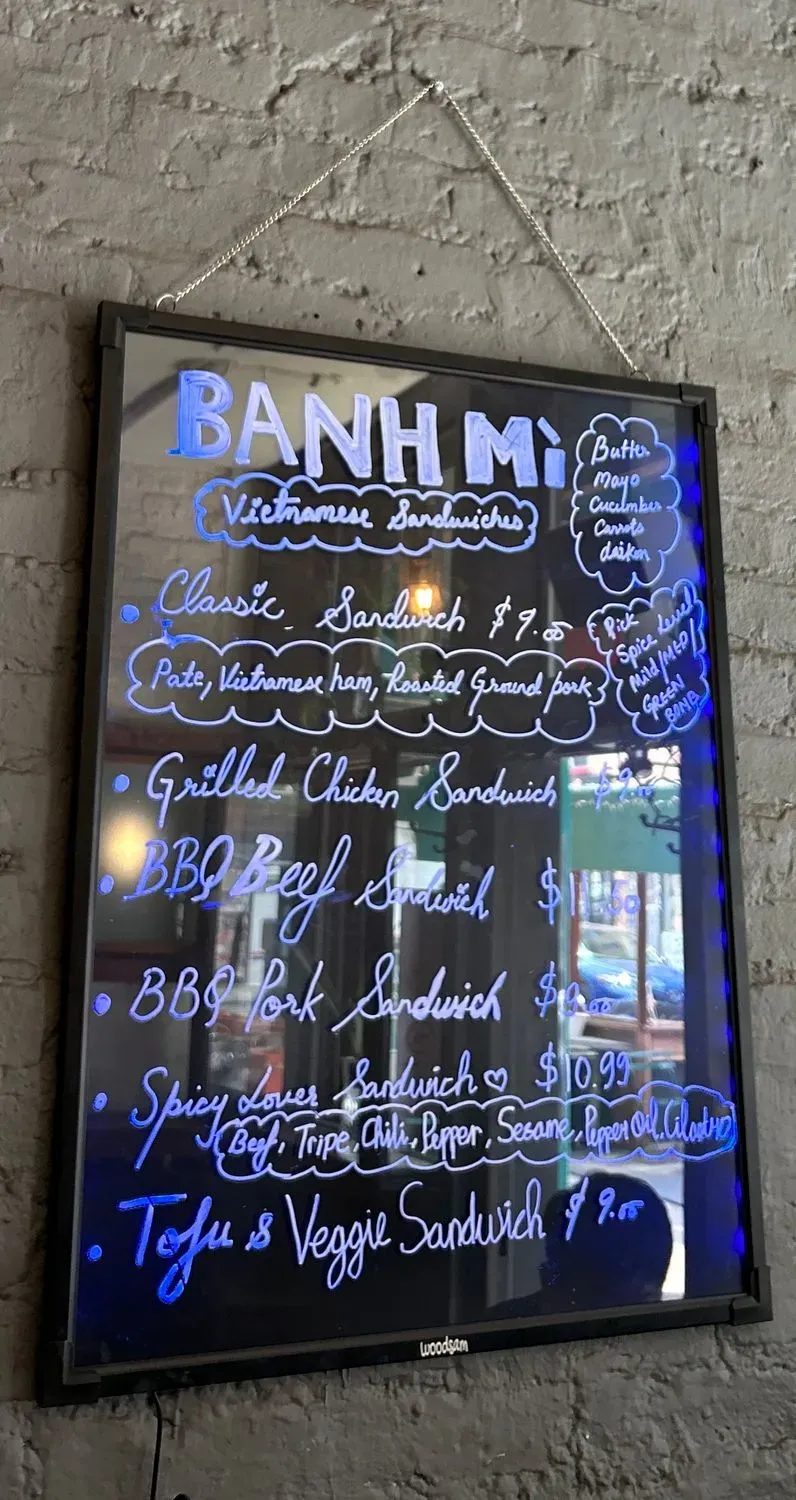 BANH Mì
Vietnamese Sandwiches
Butter
Mayo
Cucumber
Carrots
daikon
• Classic Sandwich $9.00
Pate, Vietnamese ham, Roasted Ground pork
Pick
Spice Level
Mild/MED/
GREEN
BOMB
• Grilled Chicken Sandwich $9.00
• BBQ Beef Sandwich $11.50
• BBQ Pork Sandwich $9.00
• Spicy Lover Sandwich ♡ $10.99
Beef, Tripe, Chili, Pepper, Sesame, Pepper Oil, Cilantro
• Tofu & Veggie Sandwich $9.00
woodsam